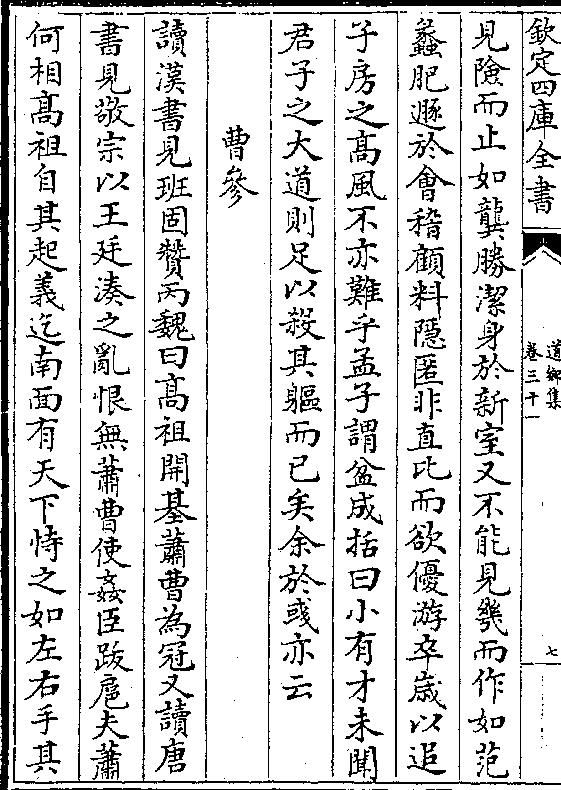 欽定四庫全書
道鄉集
卷三十一
七
見險而止如龔勝潔身於新室又不能見幾而作如范
蠡肥遯於會稽顧料隱匿非直比而欲優游卒歳以追
子房之髙風不亦難乎孟子謂盆成括曰小有才未聞
君子之大道則足以殺其軀而已矣余於彧亦云
曹參
讀漢書見班固贊丙魏曰髙祖開基蕭曹為冠又讀唐
書見敬宗以王廷湊之亂恨無蕭曹使姦臣跋扈夫蕭
何相髙祖自其起義迄南面有天下恃之如左右手其